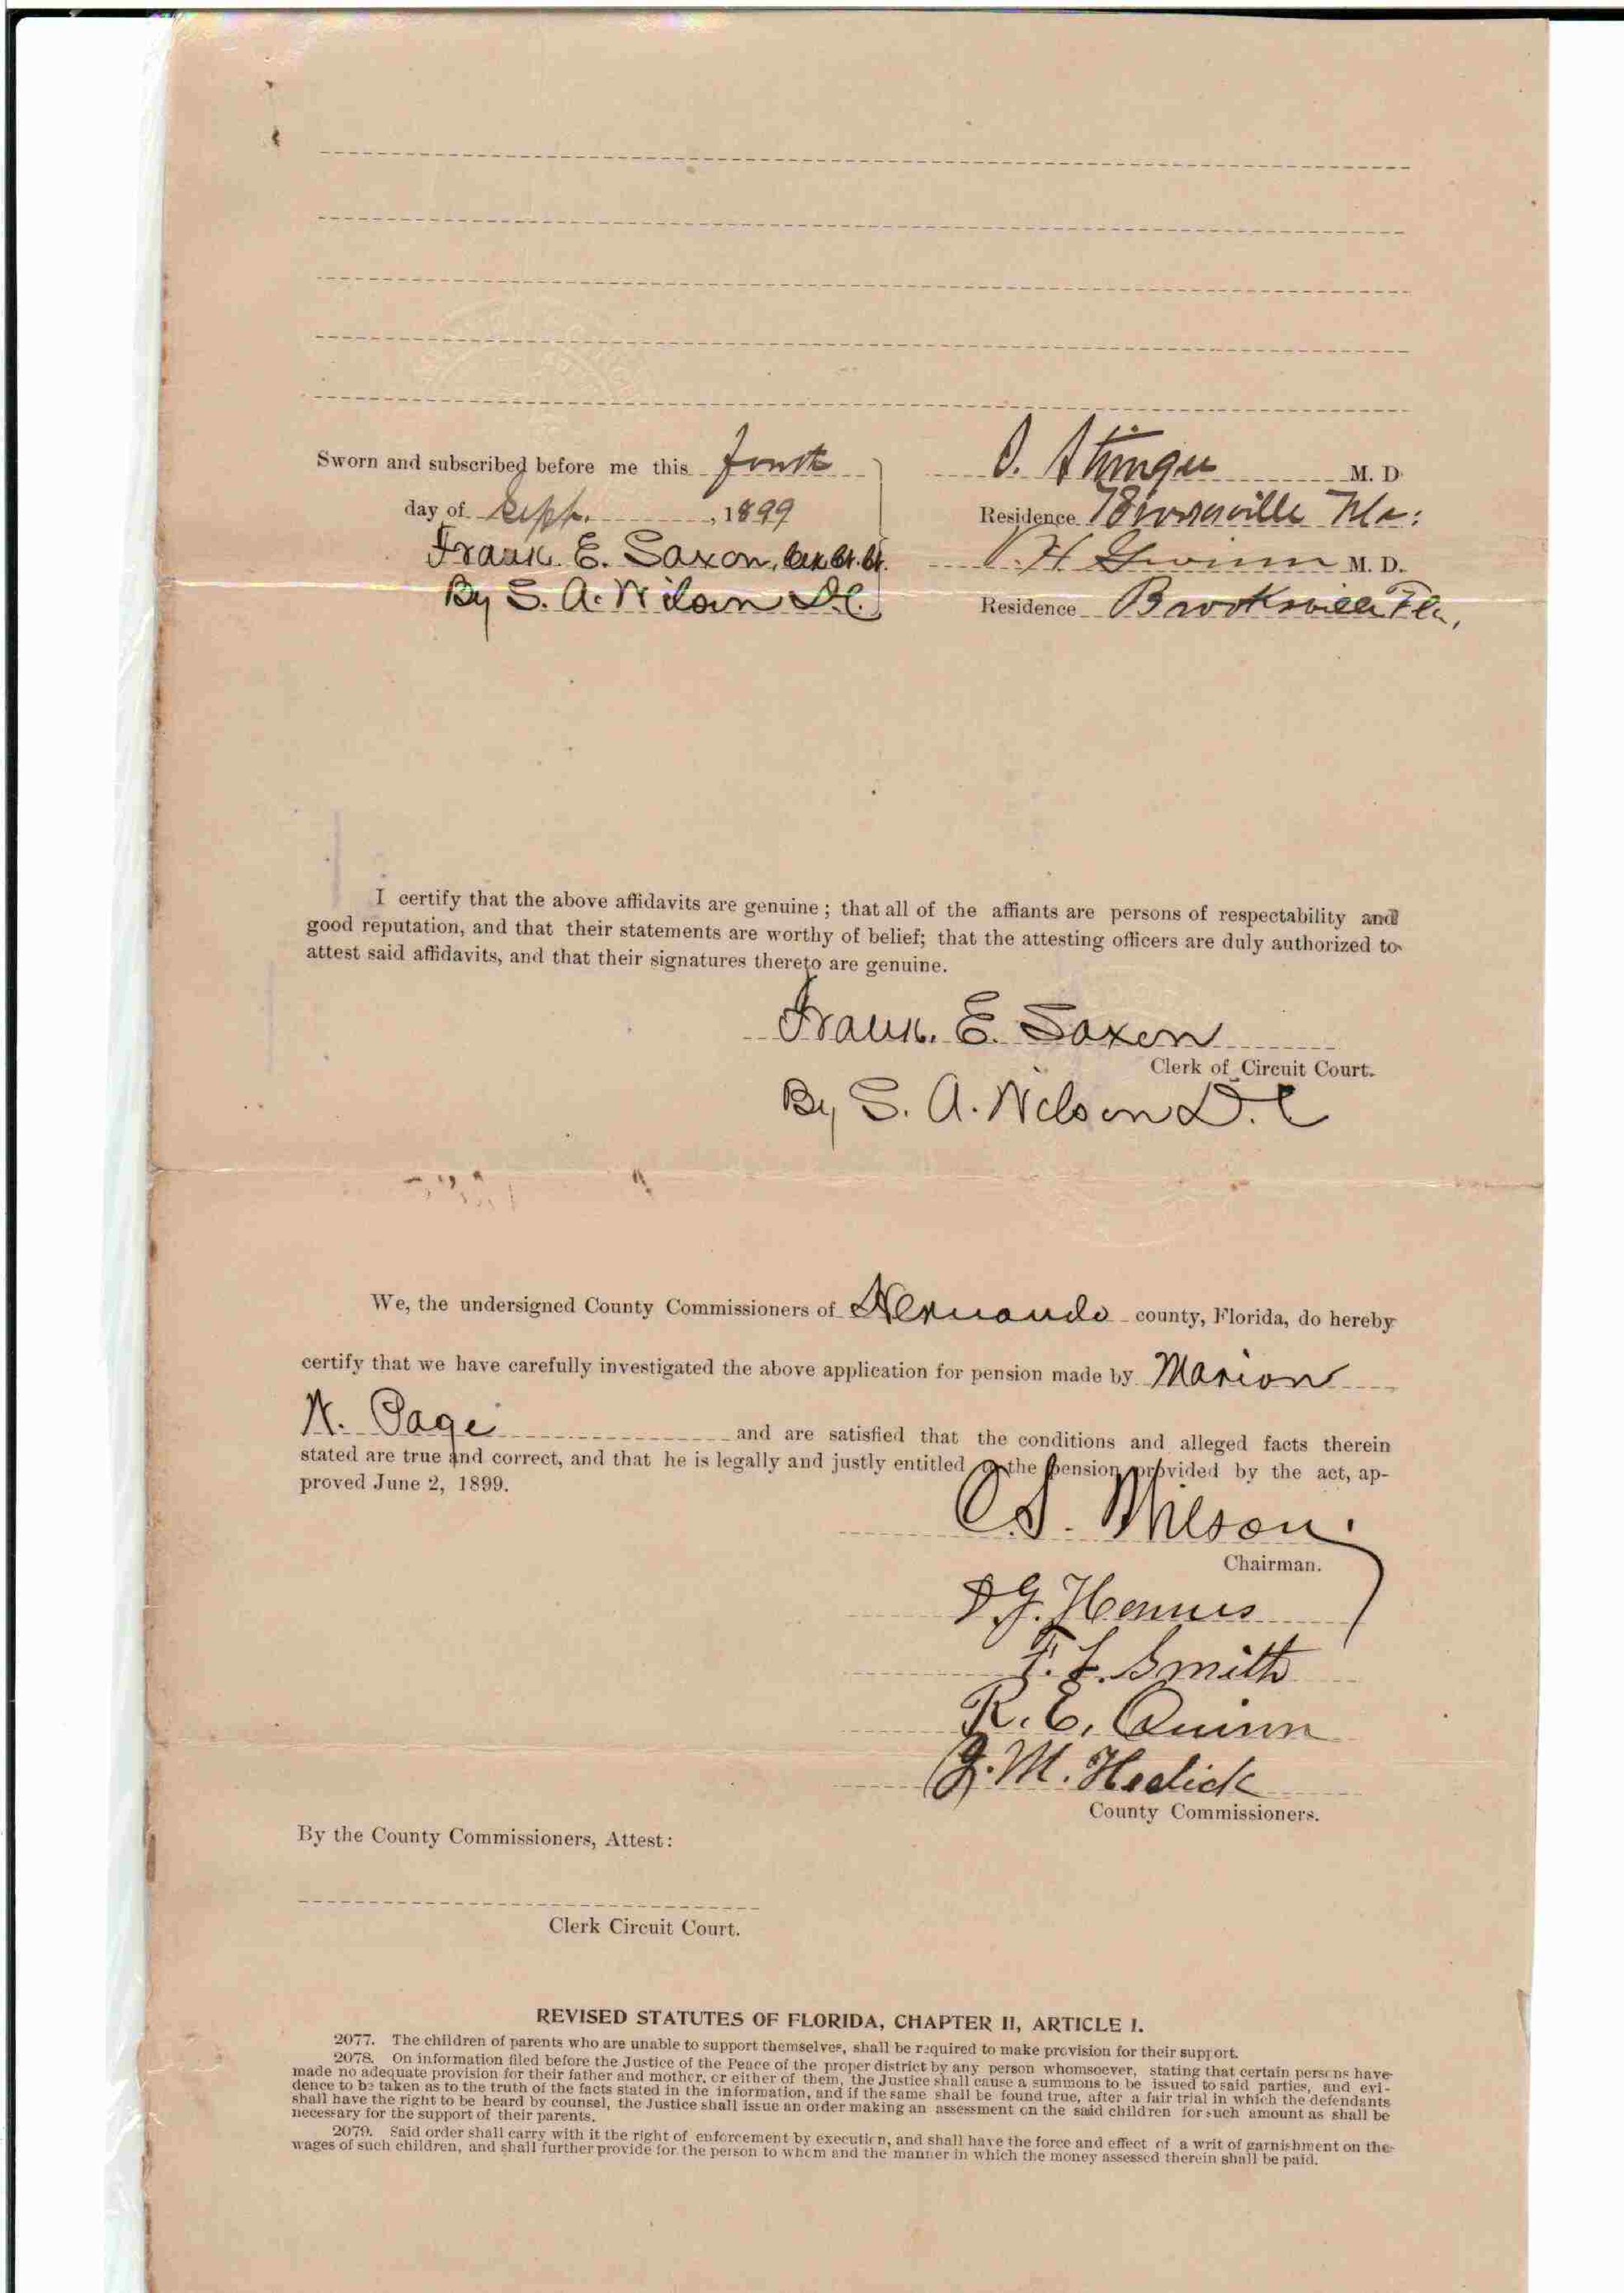 Sworn and subscribed before me this fourth
day of Sept., 1899
Frank. E. Saxon, Clk Ct. Ct.
By S. A. Wilson D.C.
Stringer M. D.
Residence Brooksville Fla.
M. D.
Residence Brooksville Fla,
I certify that the above affidavits are genuine; that all of the affiants are persons of respectability and
good reputation, and that their statements are worthy of belief; that the attesting officers are duly authorized to
attest said affidavits, and that their signatures thereto are genuine.
Frank. E. Saxon
Clerk of Circuit Court.
By S. A. Wilson D.C
We, the undersigned County Commissioners of Hernando county, Florida, do hereby
certify that we have carefully investigated the above application for pension made by Marion
N. Page and are satisfied that the conditions and alleged facts therein
stated are true and correct, and that he is legally and justly entitled to the pension provided by the act, ap-
proved June 2, 1899.
C. S. Wilson.
Chairman.
Smith
R. E. Quinn
J. M. Hedick
County Commissioners.
By the County Commissioners, Attest:
Clerk Circuit Court.
REVISED STATUTES OF FLORIDA, CHAPTER II, ARTICLE I.
2077. The children of parents who are unable to support themselves, shall be required to make provision for their support.
2078. On information filed before the Justice of the Peace of the proper district by any person whomsoever, stating that certain persons have
made no adequate provision for their father and mother, or either of them, the Justice shall cause a summons to be issued to said parties, and evi-
dence to be taken as to the truth of the facts stated in the information, and if the same shall be found true, after a fair trial in which the defendants
shall have the right to be heard by counsel, the Justice shall issue an order making an assessment on the said children for such amount as shall be
necessary for the support of their parents.
2079. Said order shall carry with it the right of enforcement by execution, and shall have the force and effect of a writ of garnishment on the
wages of such children, and shall further provide for the person to whom and the manner in which the money assessed therein shall be paid.